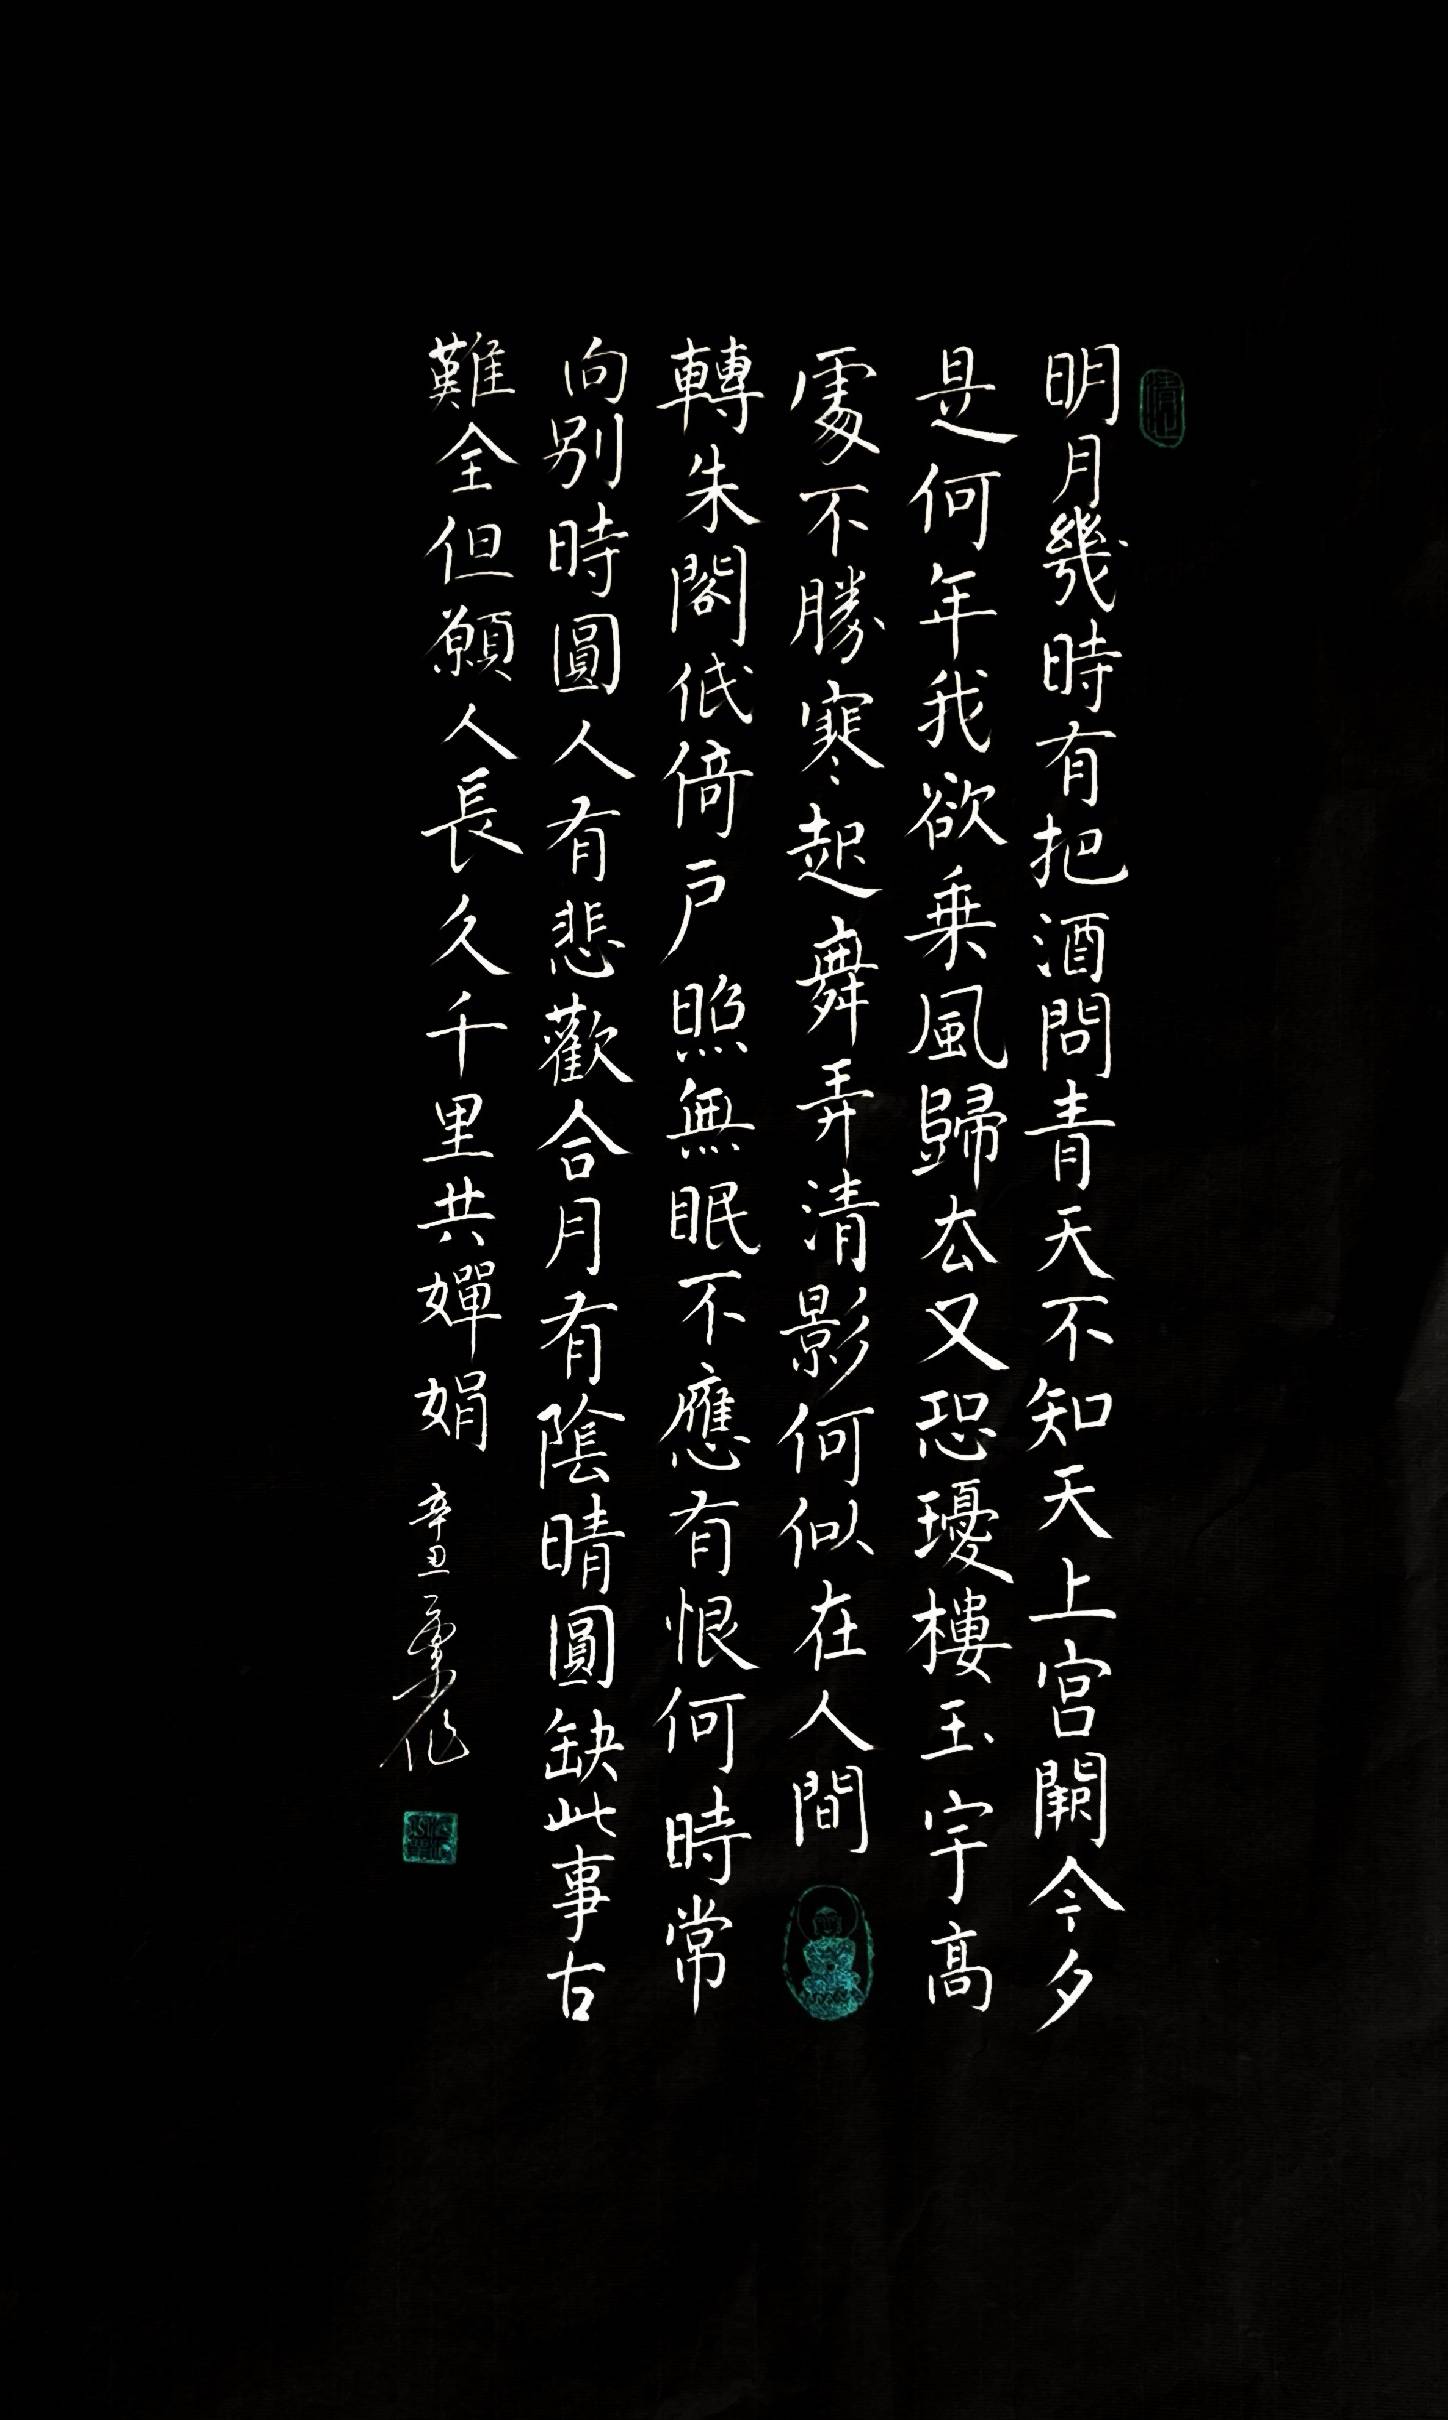 明月幾時有把酒問青天不知天上宫闕今夕
是何年我欲乗風歸去又恐瓊樓玉宇高
處不勝寒起舞弄清影何似在人間
轉朱閣低倚户照無眠不應有恨何時常
向别時圓人有悲歡合月有陰晴圓缺此事古
難全但願人長久千里共嬋娟
辛丑作